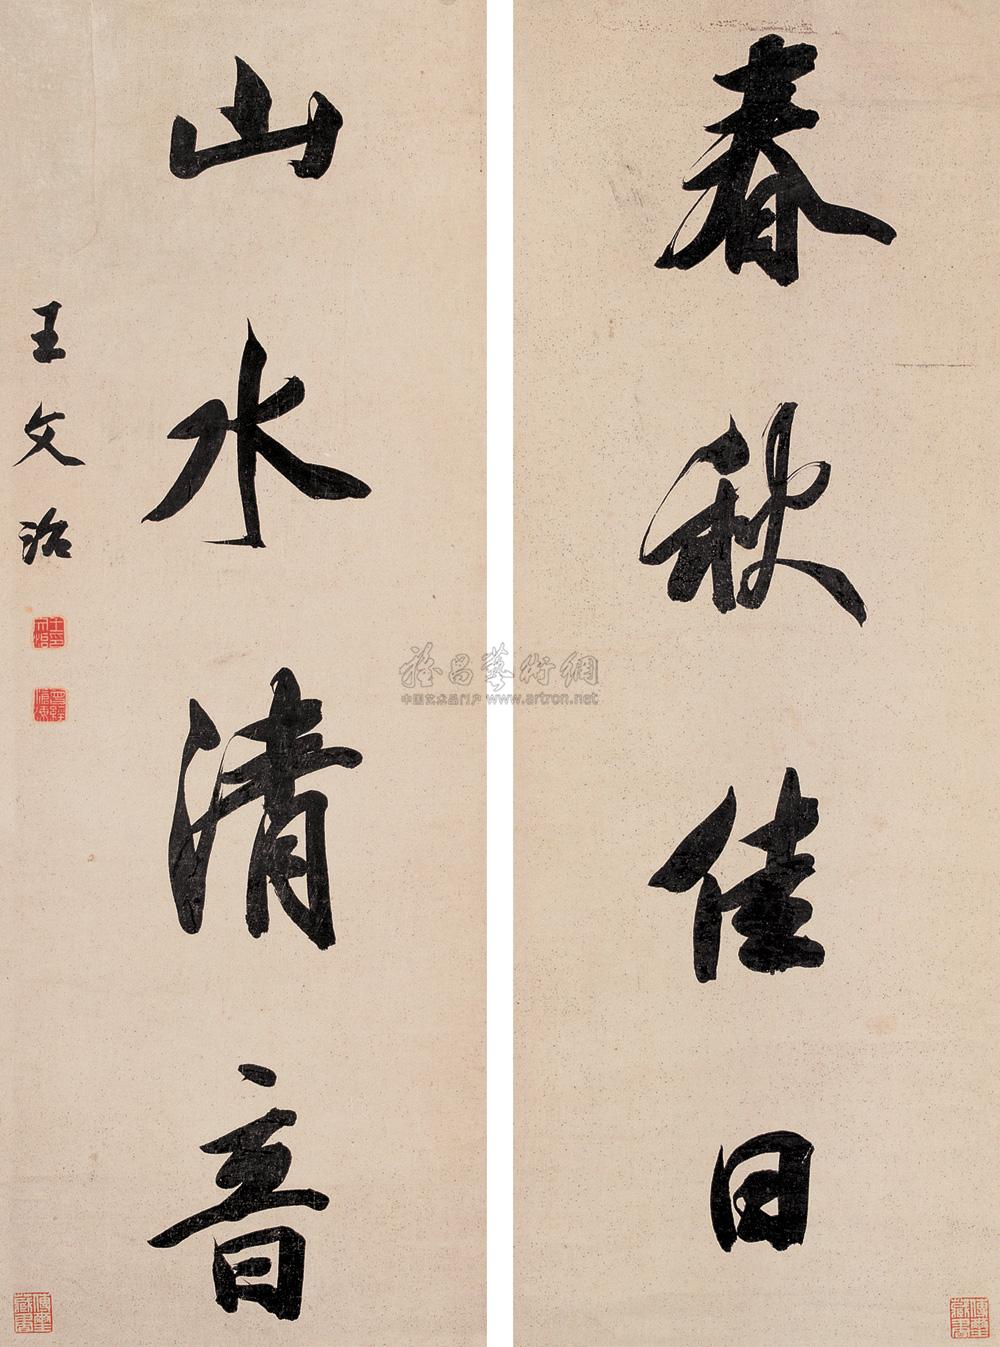 春秋佳日
山水清音
王文治
雅昌藝術網
中国艺术品门户 www.artron.net